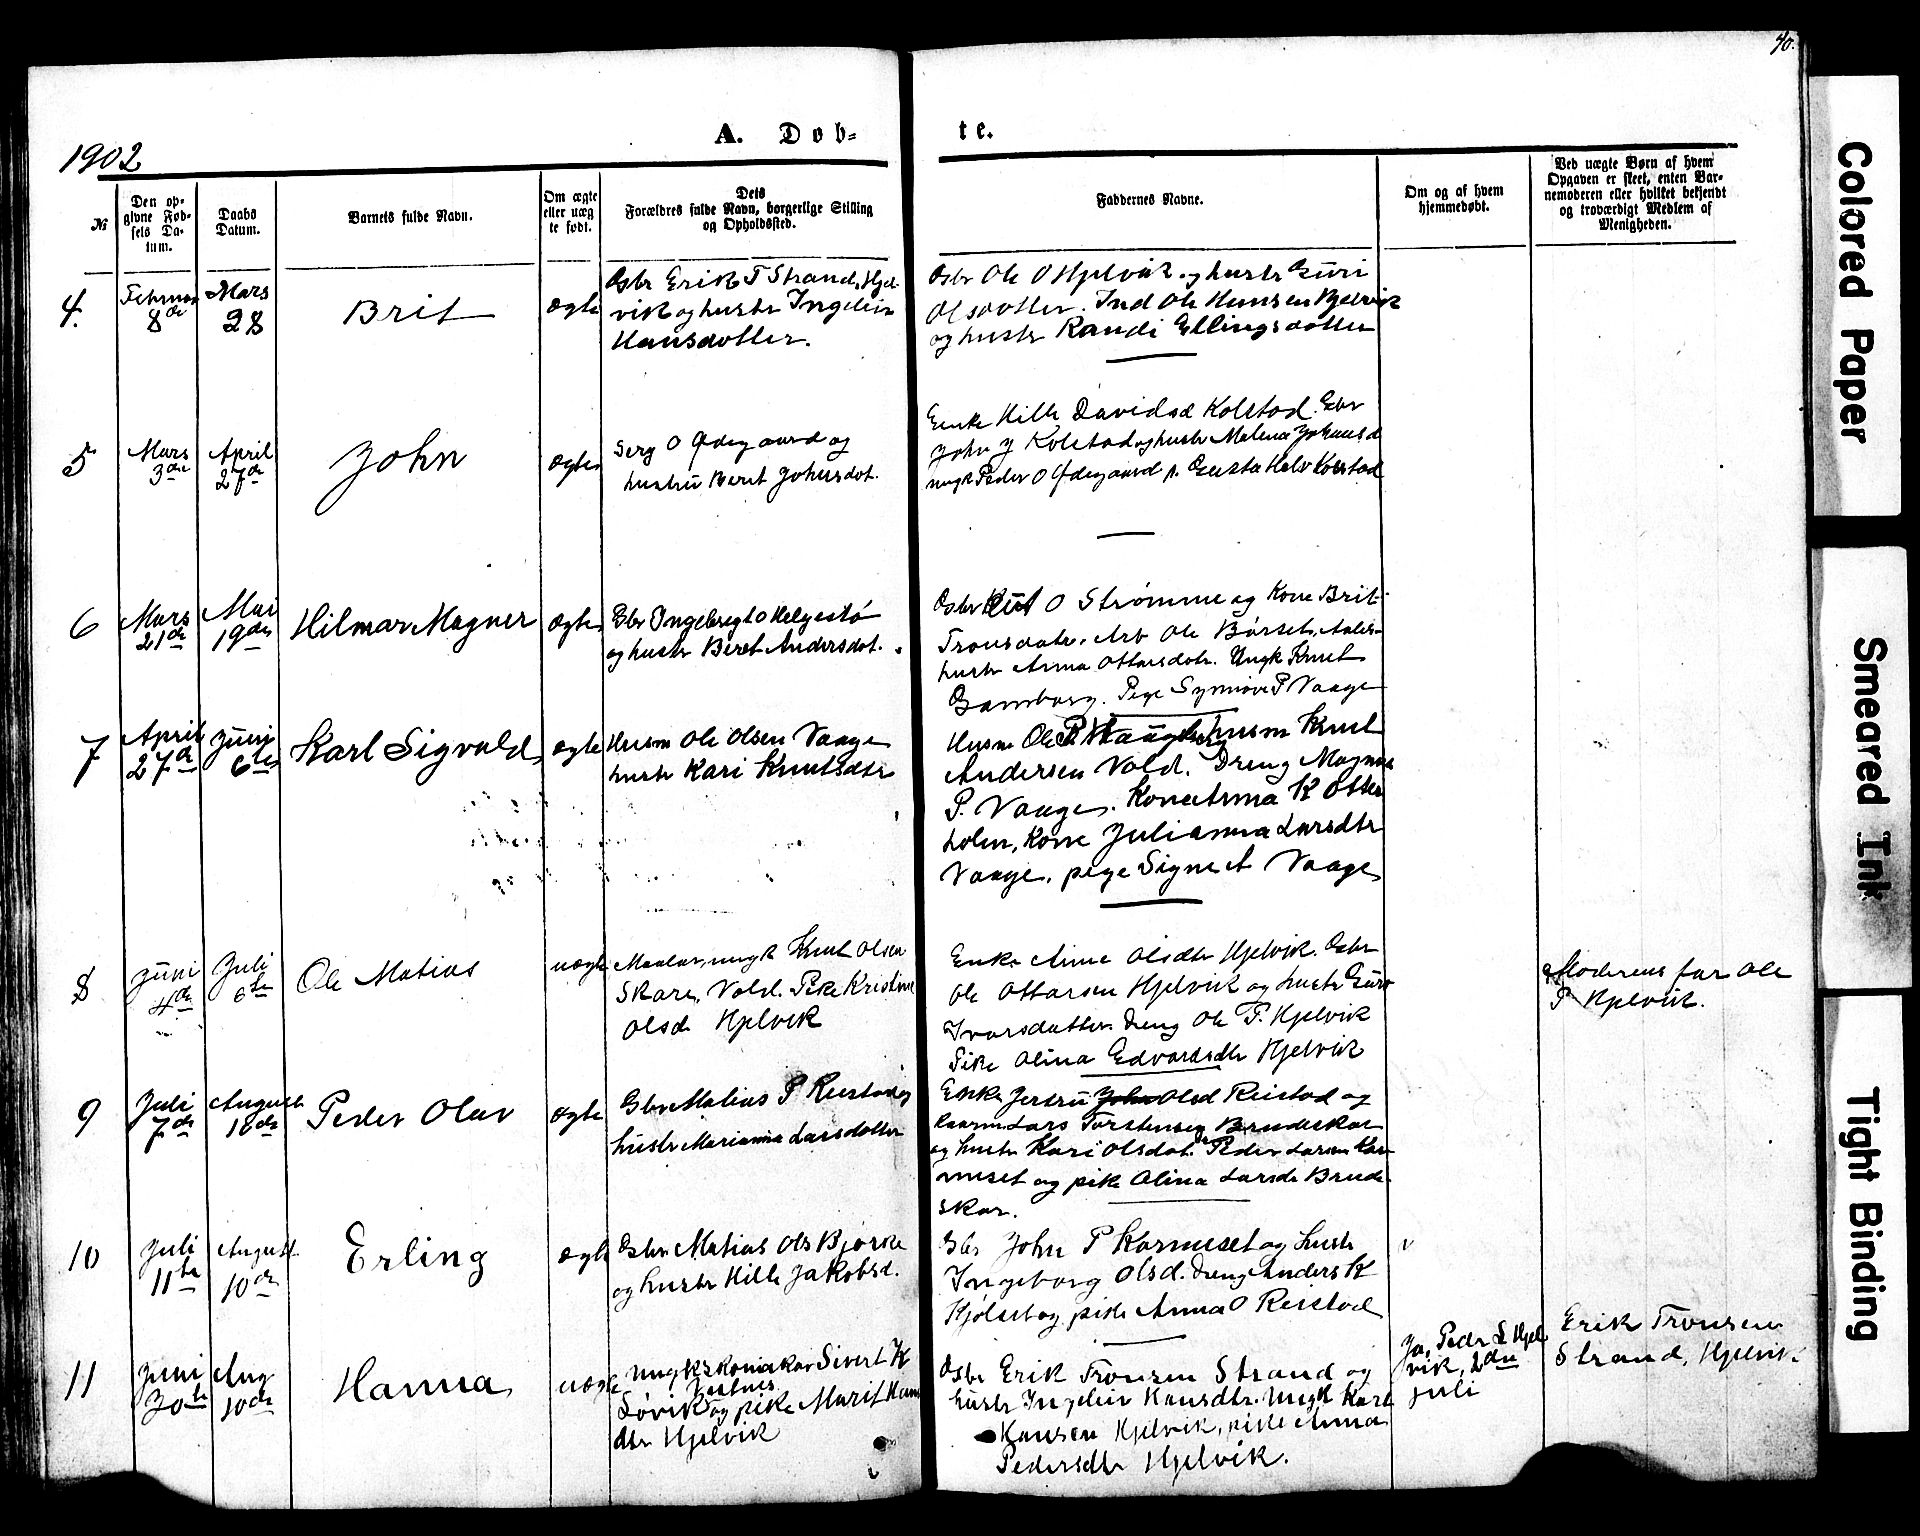 40.
A. Døb-
te.
1902
№
Den op-
givne Fød-
sels Da-
tum.
Daabs
Datum.
Barnets fulde Navn.
Om ægte
eller uæg
te født.
Dets
Forældres fulde Navn, borgerlige Stilling
og Opholdssted.
Faddernes Navne.
Om og af hvem
hjemmedøbt.
Ved uægte Børn af hvem
Opgaven er skeet, enten Bar-
nemoderen eller hvilket bekjendt
og troværdigt Medlem af
Menigheden.
4.
Februar
8de
Mars
28
Brit
ægte
Gsbr Erik T Strand, Hjel-
vik og hustr Ingelein
Hansdotter.
Gsbr Ole O Hjelvik og hustr Guri
Olsdotter. Ind Ole Hansen Hjelvik
og hustr Randi Ellingsdotter
5
Mars
3die
April
27de
John
ægte
Serg O Ødegaard og
hustru Beret Johnsdot.
Enke Hille Davidsd Kolstad. Gbr
John J Kolstad og hustr Malena Johansd
ungk Peder O Ødegaard p. Gusta Kolstad
6
Mars
21de
Mai
19de
Hilmar Magner
ægte
Gbr Ingebregt O Helgestø
og hustr Beret Andersdot.
Gsbr Knut O Strømme og Kone Brit
Tronsdatr. Arb Ole Børset,
hustr Anna Ottarsdotr. Ungk Knut
Gamborg. Pige Synnøve P Vaage
7
April
27de
Juni
6te
Karl Sigvald
ægte
Husm Ole Olsen Vaage
hustr Kari Knutsdtr
Husm Ole P husm Knut
Andersen Vold. Dreng Magnus
P. Vaage. Kone Anna K Otter
holm, Kone Julianna Larsdtr
Vaage, pige Signe A Vaage
8
Juni
4de
Juli
6te
Ole Matias
uægte
Maalar, ungk Knut Olsen
Skare, Vold. Pike Kristine
Olsd Hjelvik
Enke Anne Olsdtr Hjelvik. Gsbr
Ole Ottarsen Hjelvik og hustr Guri
Ivarsdatter. Dreng Ole P. Hjelvik
Pike Olina Edvardsdtr Hjelvik
Moderens far Ole
P Hjelvik.
9
Juli
7de
August
18de
Peder Olav
ægte
Gbr Matias P Reistad og
hustr Marianna Larsdotter
Enke Jertru John Olsd Reistad og
Kaarm Lars Torstensen Brudeskar
og hustr Kari Olsdot. Peder Larsen Kar-
muset og pike Olina Larsdr Brude-
skar.
10
Juli
11te
August
10de
Erling
ægte
Gsbr Matias Ols Bjørsse
og hustr Hille Jakobsd.
Gbr John P Karmuset og hustr
Ingeborg Olsd. Dreng Anders K
Kjølset og pike Anna O Reistad
v
11
Juni
30te
Aug
10de
Hanna
uægte
Ungk Skomakar Sivert K
Vestnes
Løvik og pike Marit Hans
dtr Hjelvik
Gsbr Erik Tronsen Strand og
hustr Ingelein Hansdtr. Ungk Karl
Hansen Hjelvik, pike Anna
Pedersdtr Hjelvik.
Ja, Peder L Hjel
vik, 2den
juli
Erik Tronsen
Strand, Hjelvik.
Colored Paper
Smeared Ink
Tight Binding